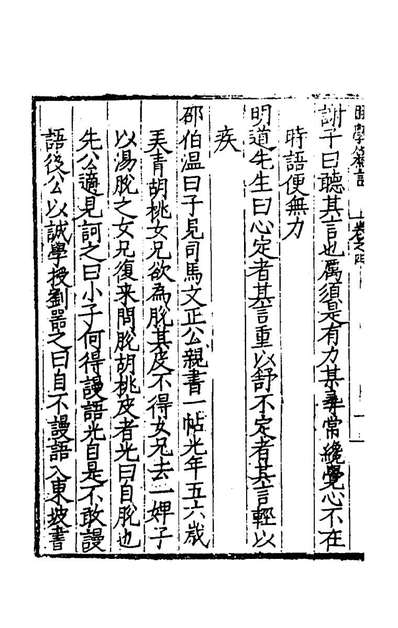 謝子曰聽其言也厲須是有力某尋常纔覺心不在
時語便無力
明道先生曰心定者其言重以舒不定者其言輕以
疾
邵伯温曰子見司馬文正公親書一帖光年五六歲
弄青胡桃女兄欲為脫其皮不得女兄去一婢子
以湯脫之女兄復来問脫胡桃皮者光曰自脫也
先公適見訶之曰小子何得謾語光自是不敢謾
語後公以誠學授劉噐之曰自不謾語入東坡書